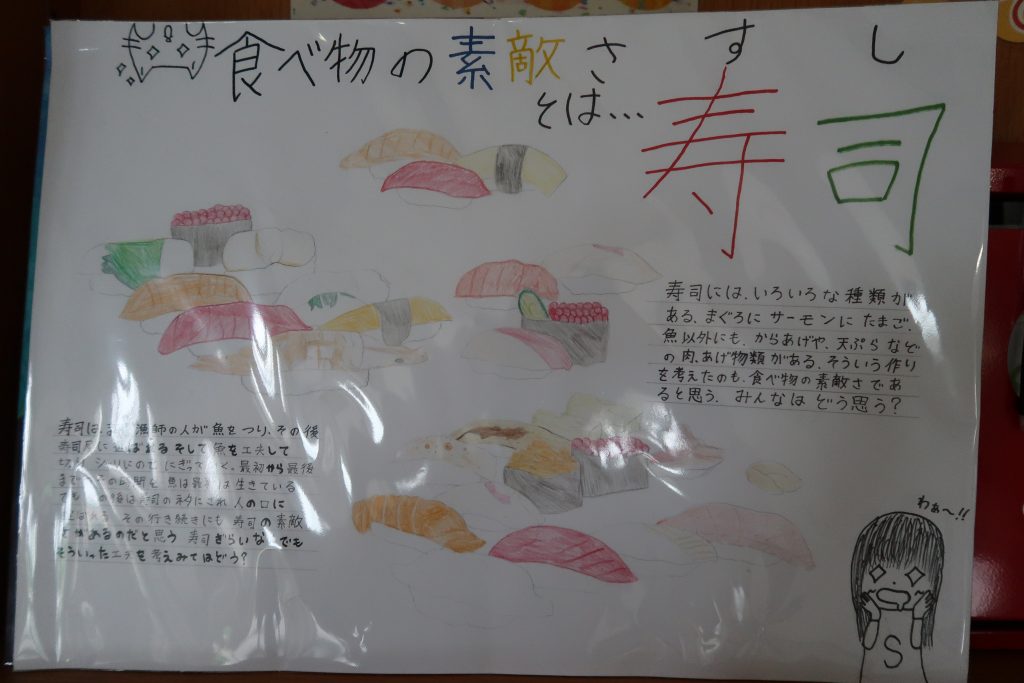 食べ物の素敵さ
そは...
すし
寿司
寿司には、いろいろな種類が
ある、まぐろに サーモンに たまご、
魚以外にも、からあげや、天ぷら などど
の肉、あげ物類がある、そういう作り
を考えたのも、食べ物の素敵さであ
ると思う、みんなは どう思う?
寿司は、 漁師の人が魚をつり、その後
寿司屋に そして 魚を工夫して
にぎって 、最初から最後
まで その時間を 魚は最初は生きている
でも の後は寿司のネタにされ 人の口に
その行き続きにも 寿司の素敵
があるのだと思う 寿司ぎらいな でも
そういった を考えみてはどう?
わぁ〜!!
S